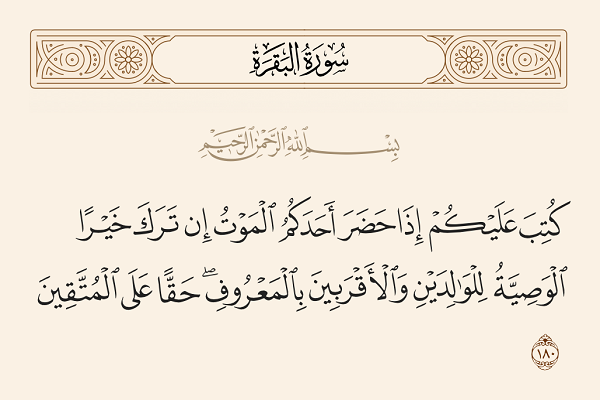 سُورَةُ البَقَرَةِ
بِسْمِ ٱللَّهِ ٱلرَّحْمَٰنِ ٱلرَّحِيمِ
كُتِبَ عَلَيْكُمْ إِذَا حَضَرَ أَحَدَكُمُ ٱلْمَوْتُ إِن تَرَكَ خَيْرًا
ٱلْوَصِيَّةُ لِلْوَٰلِدَيْنِ وَٱلْأَقْرَبِينَ بِٱلْمَعْرُوفِ ۖ حَقًّا عَلَى ٱلْمُتَّقِينَ
١٨٠